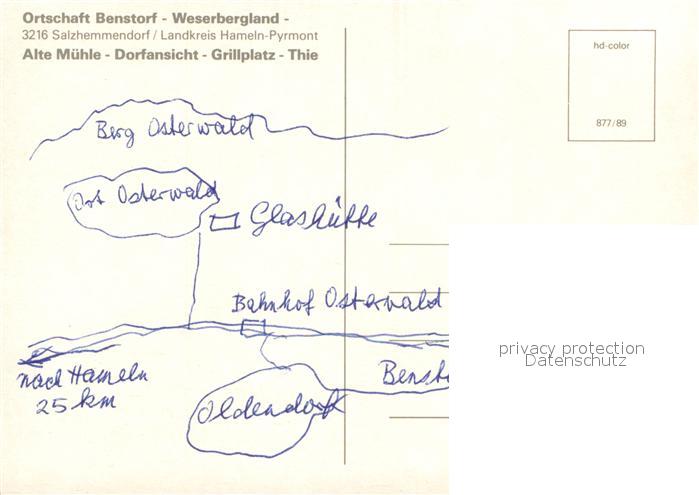 Ortschaft Benstorf - Weserbergland -
3216 Salzhemmendorf / Landkreis Hameln-Pyrmont
Alte Mühle - Dorfansicht - Grillplatz - Thie
hd-color
877/89
Berg Osterwald
Ort Osterwald
Glashütte
Bahnhof Osterwald
privacy protection
Datenschutz
nach Hameln
25 km
Oldendorf
Bensto